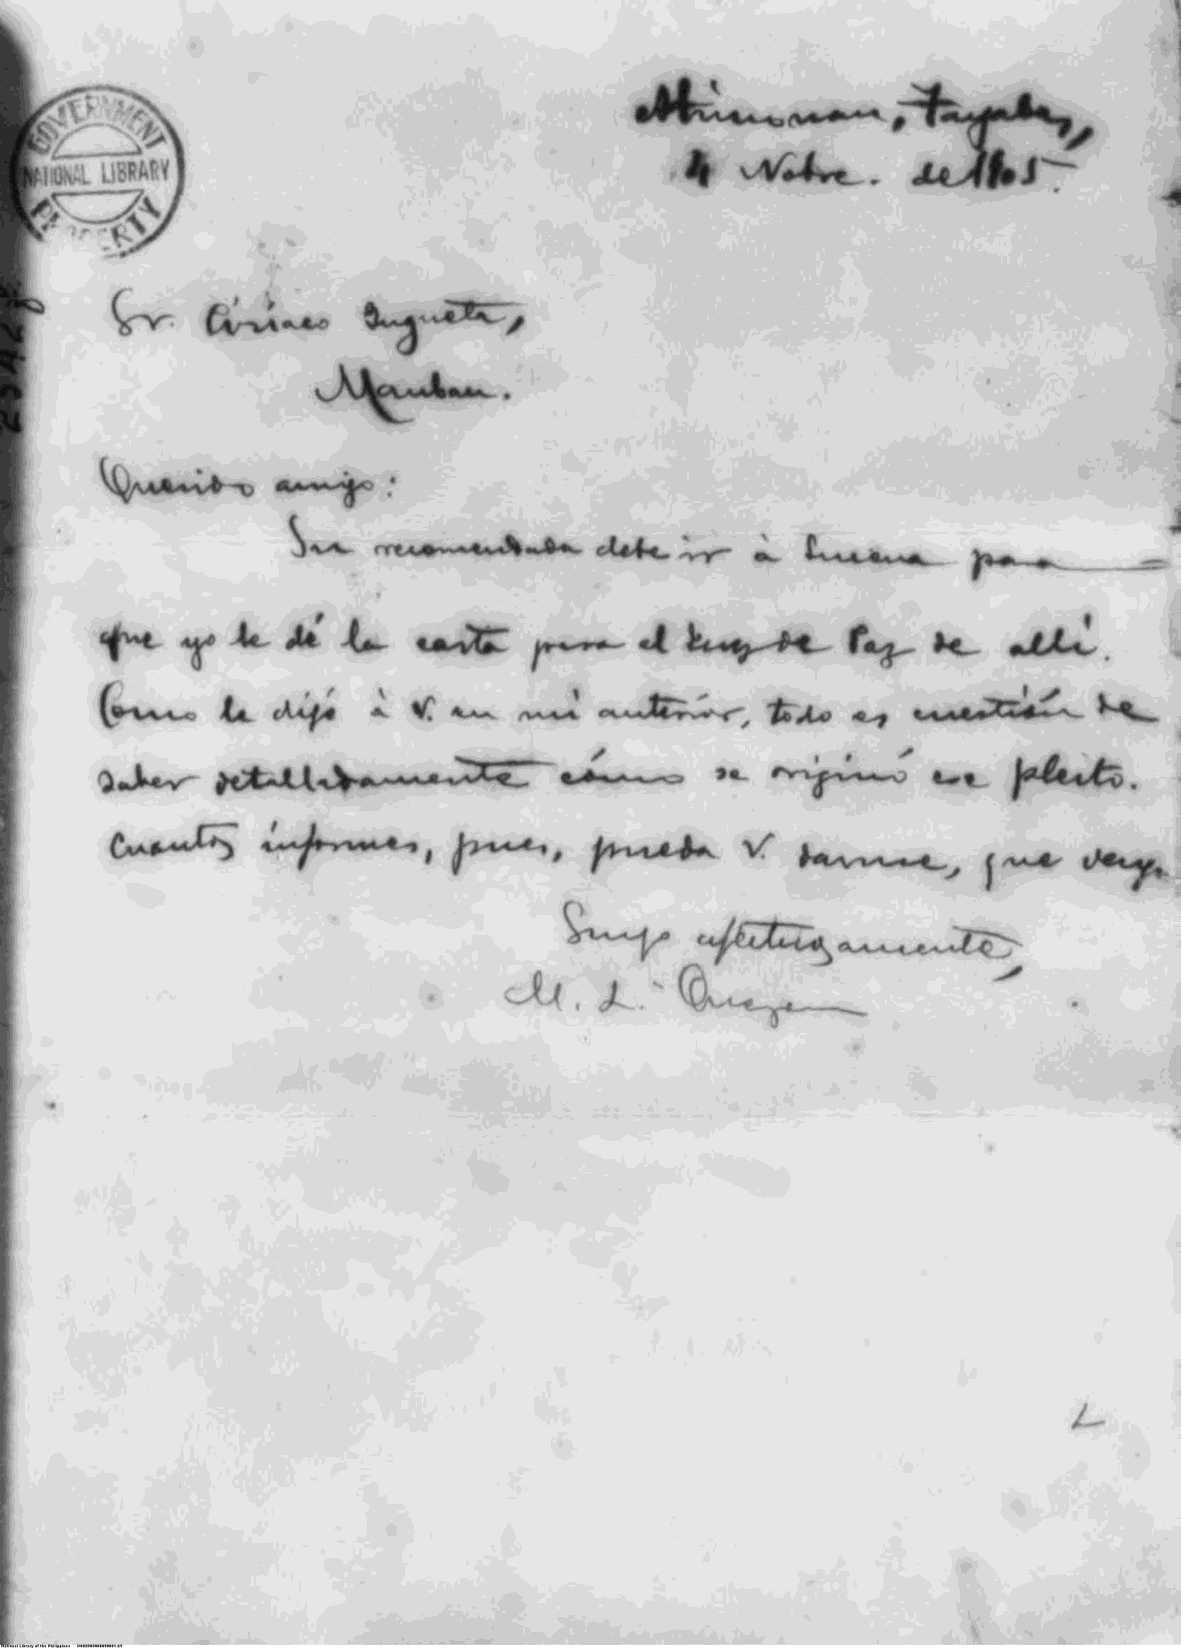 GOVERNMENT
NATIONAL LIBRARY
PROPERTY
Atimonan, Tayabas,
4 Nobre. de 1905.
Sr. Ciriaco Zugueta,
Mauban.
Querido amigo:
Su recomendada debe ir à Lucena para
que yo le dé la carta para el Juez de Paz de allí.
Como le dijé à V. en mi anterior, todo es cuestión de
saber detalladamente cómo se originó ese pleito.
Cuantos informes, pues, pueda V. darme, que venga.
Suyo afectuosamente,
M. L. Quezon
L
National Library of the Philippines